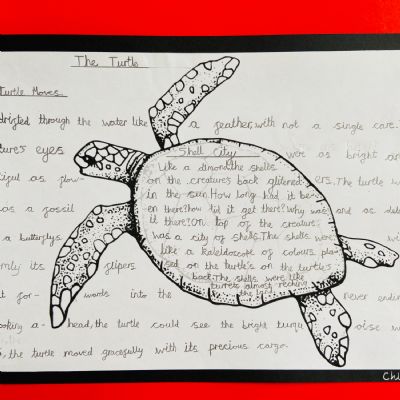 The Turtle
Turtle Moves
drifted through the water like a feather, with not a single care.
ture's eyes
Shell City
were as bright an
Like a dimond, the shells
iful as flow-
on the creature's back glittened
ers. The turtle w
in the sun. How long had it be-
as a fossil
en there? how did it get there? Why was
and as del
it there? On top of the creature,
a butterflys.
was a city of shells. The shells were
like a kaleidoscope of colours pla-
mly its flipers
sed on the turtle's on the turtle's
back. The shells were like
turrets almost reching
t for- wards into the
never endin
ooking a- head, the turtle could see the bright turqu oise w
, the turtle moved gracefully with its precious cargo.
Chl